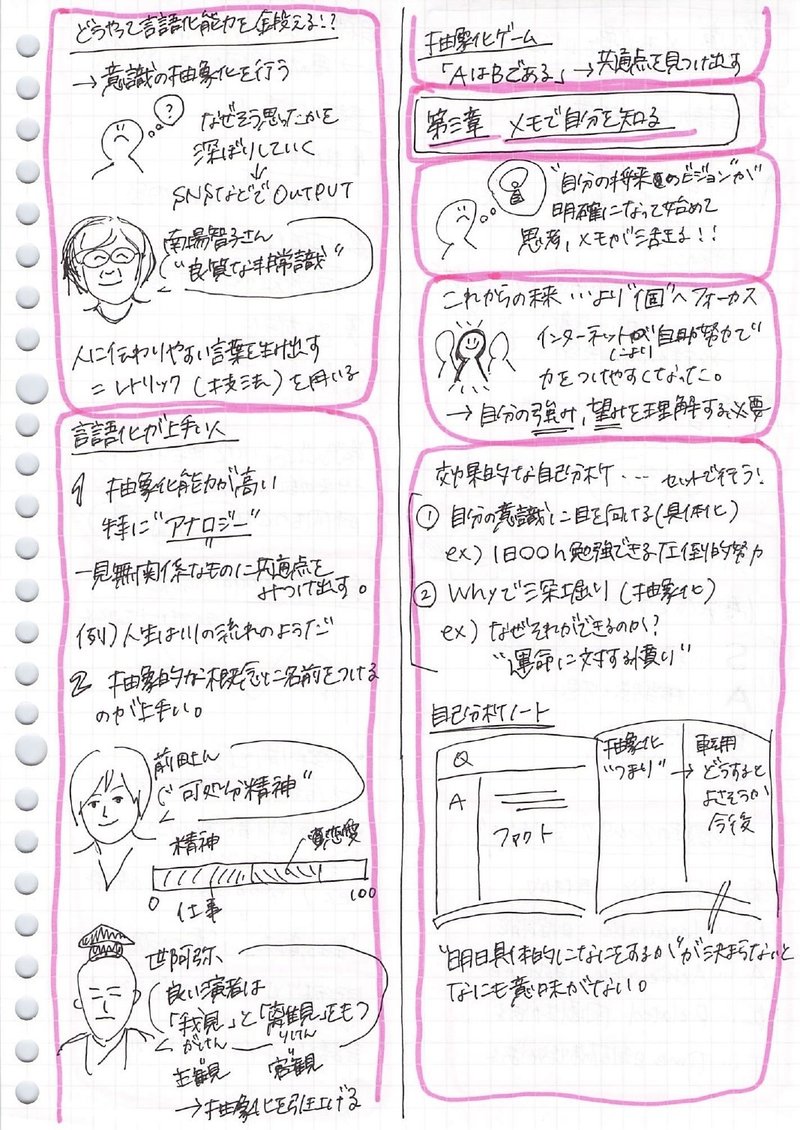 どうやって言語化能力を鍛える!?
→意識の抽象化を行う
?
なぜそう思ったかを
深ぼりしていく
↓
SNSなどでOUTPUT
南場智子さん
"良質な非常識"
人に伝わりやすい言葉を生み出す
=レトリック(技法)を用いる
言語化が上手い人
1 抽象化能力が高い
特に"アナロジー"
一見無関係なものに共通点を
みつけ出す。
例)人生は川の流れのようだ
2 抽象的な概念に名前をつける
のが上手い。
前田さん
"可処分精神"
精神
恋愛
0 仕事 100
世阿弥、
良い演者は
「我見」と「離見」をもつ
がけん りけん
主観 客観
→抽象化を引上げる
抽象化ゲーム
「AはBである」→共通点を見つけ出す
第三章 メモで自分を知る
"自分の将来のビジョン"が
明確になって始めて
思考、メモが活きる!!
これからの未来…より"個"へフォーカス
インターネットにより自力努力で
力をつけやすくなった。
→自分の強み,望みを理解する必要
効果的な自己分析… セットで行う!
① 自分の意識に目を向ける(具体化)
ex)1日〇〇h勉強できる圧倒的努力
② Whyで深堀り(抽象化)
ex)なぜそれができるのか?
"運命に対する憤り"
自己分析ノート
Q
A
ファクト
抽象化
"つまり"
→
転用
どうすると
よさそうか
今後
"明日具体的になにをするか"が決まらないと
なにも意味がない。